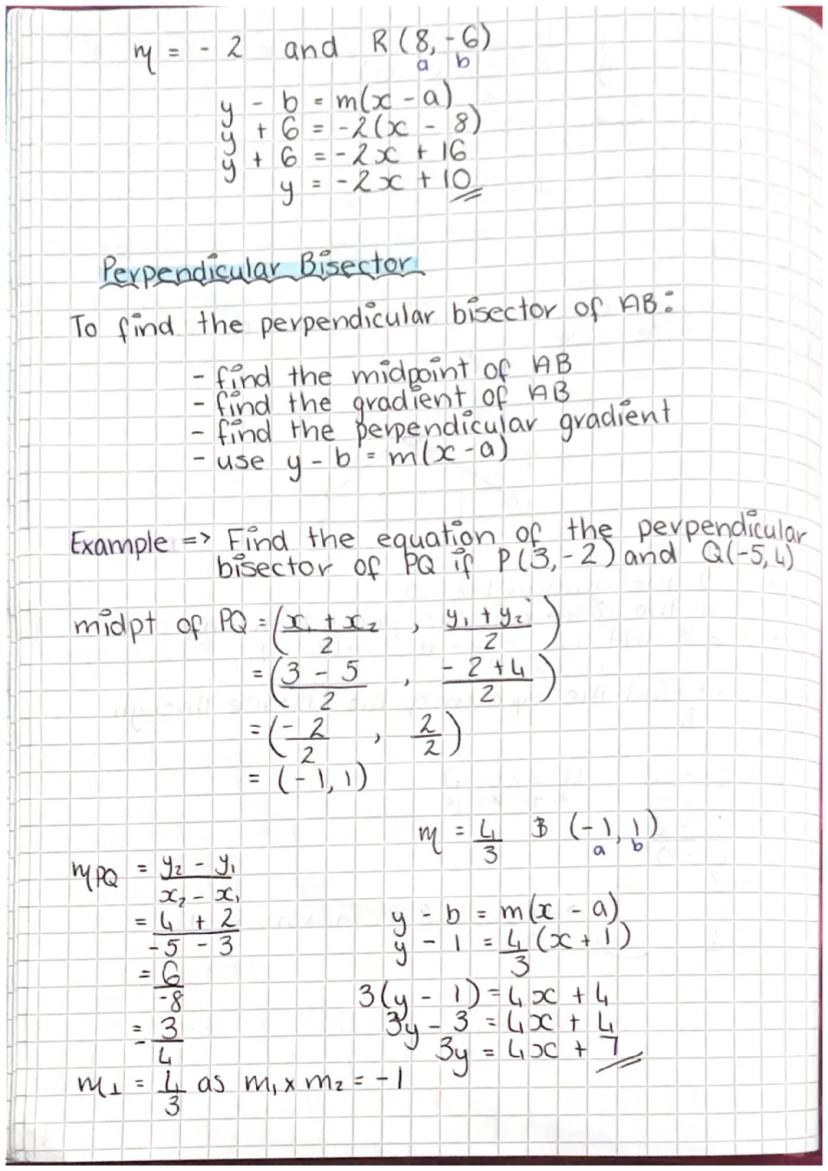 m = - 2 and R (8, -6)
a b
y - b = m(x - a)
y + 6 = -2(x - 8)
y + 6 = -2x + 16
y = -2x + 10
Perpendicular Bisector
To find the perpendicular bisector of AB:
- find the midpoint of AB
- find the gradient of AB
- find the perpendicular gradient
- use y - b = m(x - a)
Example => Find the equation of the perpendicular
bisector of PQ if P(3, -2) and Q(-5, 4)
midpt of PQ = (x₁ + x₂ / 2 , y₁ + y₂ / 2)
= (3 - 5 / 2 , - 2 + 4 / 2)
= (- 2 / 2 , 2 / 2)
= (- 1, 1)
mPQ = y₂ - y₁ / x₂ - x₁
= 4 + 2 / -5 - 3
= 6 / -8
= - 3 / 4
m⊥ = 4 / 3 as m₁ x m₂ = -1
m = 4 / 3 B (-1, 1)
a b
y - b = m(x - a)
y - 1 = 4 / 3 (x + 1)
3(y - 1) = 4x + 4
3y - 3 = 4x + 4
3y = 4x + 7